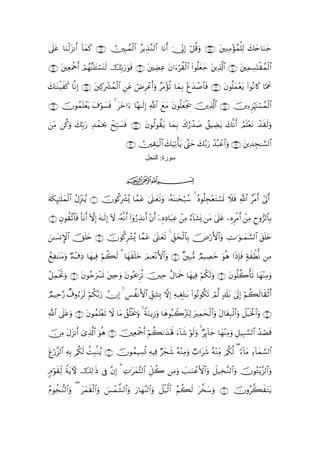 جَنَاحَكَ لِلْمُؤْمِنِينَ ﴿٨٨﴾ وَقُلْ إِنِّىٓ أَنَا ٱلنَّذِيرُ ٱلْمُبِينُ ﴿٨٩﴾ كَمَآ أَنزَلْنَا عَلَى
ٱلْمُقْتَسِمِينَ ﴿٩٠﴾ ٱلَّذِينَ جَعَلُوا۟ ٱلْقُرْءَانَ عِضِينَ ﴿٩١﴾ فَوَرَبِّكَ لَنَسْـَٔلَنَّهُمْ أَجْمَعِينَ ﴿٩٢﴾
عَمَّا كَانُوا۟ يَعْمَلُونَ ﴿٩٣﴾ فَٱصْدَعْ بِمَا تُؤْمَرُ وَأَعْرِضْ عَنِ ٱلْمُشْرِكِينَ ﴿٩٤﴾ إِنَّا كَفَيْنَٰكَ
ٱلْمُسْتَهْزِءِينَ ﴿٩٥﴾ ٱلَّذِينَ يَجْعَلُونَ مَعَ ٱللَّهِ إِلَٰهًا ءَاخَرَ ۚ فَسَوْفَ يَعْلَمُونَ ﴿٩٦﴾
وَلَقَدْ نَعْلَمُ أَنَّكَ يَضِيقُ صَدْرُكَ بِمَا يَقُولُونَ ﴿٩٧﴾ فَسَبِّحْ بِحَمْدِ رَبِّكَ وَكُن مِّنَ
ٱلسَّٰجِدِينَ ﴿٩٨﴾ وَٱعْبُدْ رَبَّكَ حَتَّىٰ يَأْتِيَكَ ٱلْيَقِينُ ﴿٩٩﴾
سورة: النحل
بِسْمِ ٱللَّهِ ٱلرَّحْمَٰنِ ٱلرَّحِيمِ
أَتَىٰٓ أَمْرُ ٱللَّهِ فَلَا تَسْتَعْجِلُوهُ ۚ سُبْحَٰنَهُۥ وَتَعَٰلَىٰ عَمَّا يُشْرِكُونَ ﴿١﴾ يُنَزِّلُ ٱلْمَلَٰٓئِكَةَ
بِٱلرُّوحِ مِنْ أَمْرِهِۦ عَلَىٰ مَن يَشَآءُ مِنْ عِبَادِهِۦٓ أَنْ أَنذِرُوٓا۟ أَنَّهُۥ لَآ إِلَٰهَ إِلَّآ أَنَا۠ فَٱتَّقُونِ ﴿٢﴾
خَلَقَ ٱلسَّمَٰوَٰتِ وَٱلْأَرْضَ بِٱلْحَقِّ ۚ تَعَٰلَىٰ عَمَّا يُشْرِكُونَ ﴿٣﴾ خَلَقَ ٱلْإِنسَٰنَ
مِن نُّطْفَةٍ فَإِذَا هُوَ خَصِيمٌ مُّبِينٌ ﴿٤﴾ وَٱلْأَنْعَٰمَ خَلَقَهَا ۗ لَكُمْ فِيهَا دِفْءٌ وَمَنَٰفِعُ
وَمِنْهَا تَأْكُلُونَ ﴿٥﴾ وَلَكُمْ فِيهَا جَمَالٌ حِينَ تُرِيحُونَ وَحِينَ تَسْرَحُونَ ﴿٦﴾ وَتَحْمِلُ
أَثْقَالَكُمْ إِلَىٰ بَلَدٍ لَّمْ تَكُونُوا۟ بَٰلِغِيهِ إِلَّا بِشِقِّ ٱلْأَنفُسِ ۚ إِنَّ رَبَّكُمْ لَرَءُوفٌ رَّحِيمٌ
﴿٧﴾ وَٱلْخَيْلَ وَٱلْبِغَالَ وَٱلْحَمِيرَ لِتَرْكَبُوهَا وَزِينَةً ۚ وَيَخْلُقُ مَا لَا تَعْلَمُونَ ﴿٨﴾ وَعَلَى ٱللَّهِ
قَصْدُ ٱلسَّبِيلِ وَمِنْهَا جَآئِرٌ ۚ وَلَوْ شَآءَ لَهَدَىٰكُمْ أَجْمَعِينَ ﴿٩﴾ هُوَ ٱلَّذِىٓ أَنزَلَ مِنَ
ٱلسَّمَآءِ مَآءً ۖ لَّكُم مِّنْهُ شَرَابٌ وَمِنْهُ شَجَرٌ فِيهِ تُسِيمُونَ ﴿١٠﴾ يُنۢبِتُ لَكُم بِهِ ٱلزَّرْعَ
وَٱلزَّيْتُونَ وَٱلنَّخِيلَ وَٱلْأَعْنَٰبَ وَمِن كُلِّ ٱلثَّمَرَٰتِ ۗ إِنَّ فِى ذَٰلِكَ لَءَايَةً لِّقَوْمٍ
يَتَفَكَّرُونَ ﴿١١﴾ وَسَخَّرَ لَكُمُ ٱلَّيْلَ وَٱلنَّهَارَ وَٱلشَّمْسَ وَٱلْقَمَرَ ۖ وَٱلنُّجُومُ